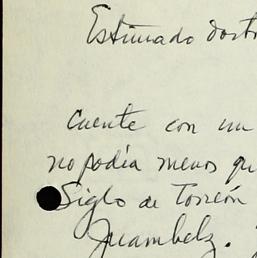 Estimado doctor
Cuente con un
no podía menos qu
Siglo de Torreón
Juambelz.